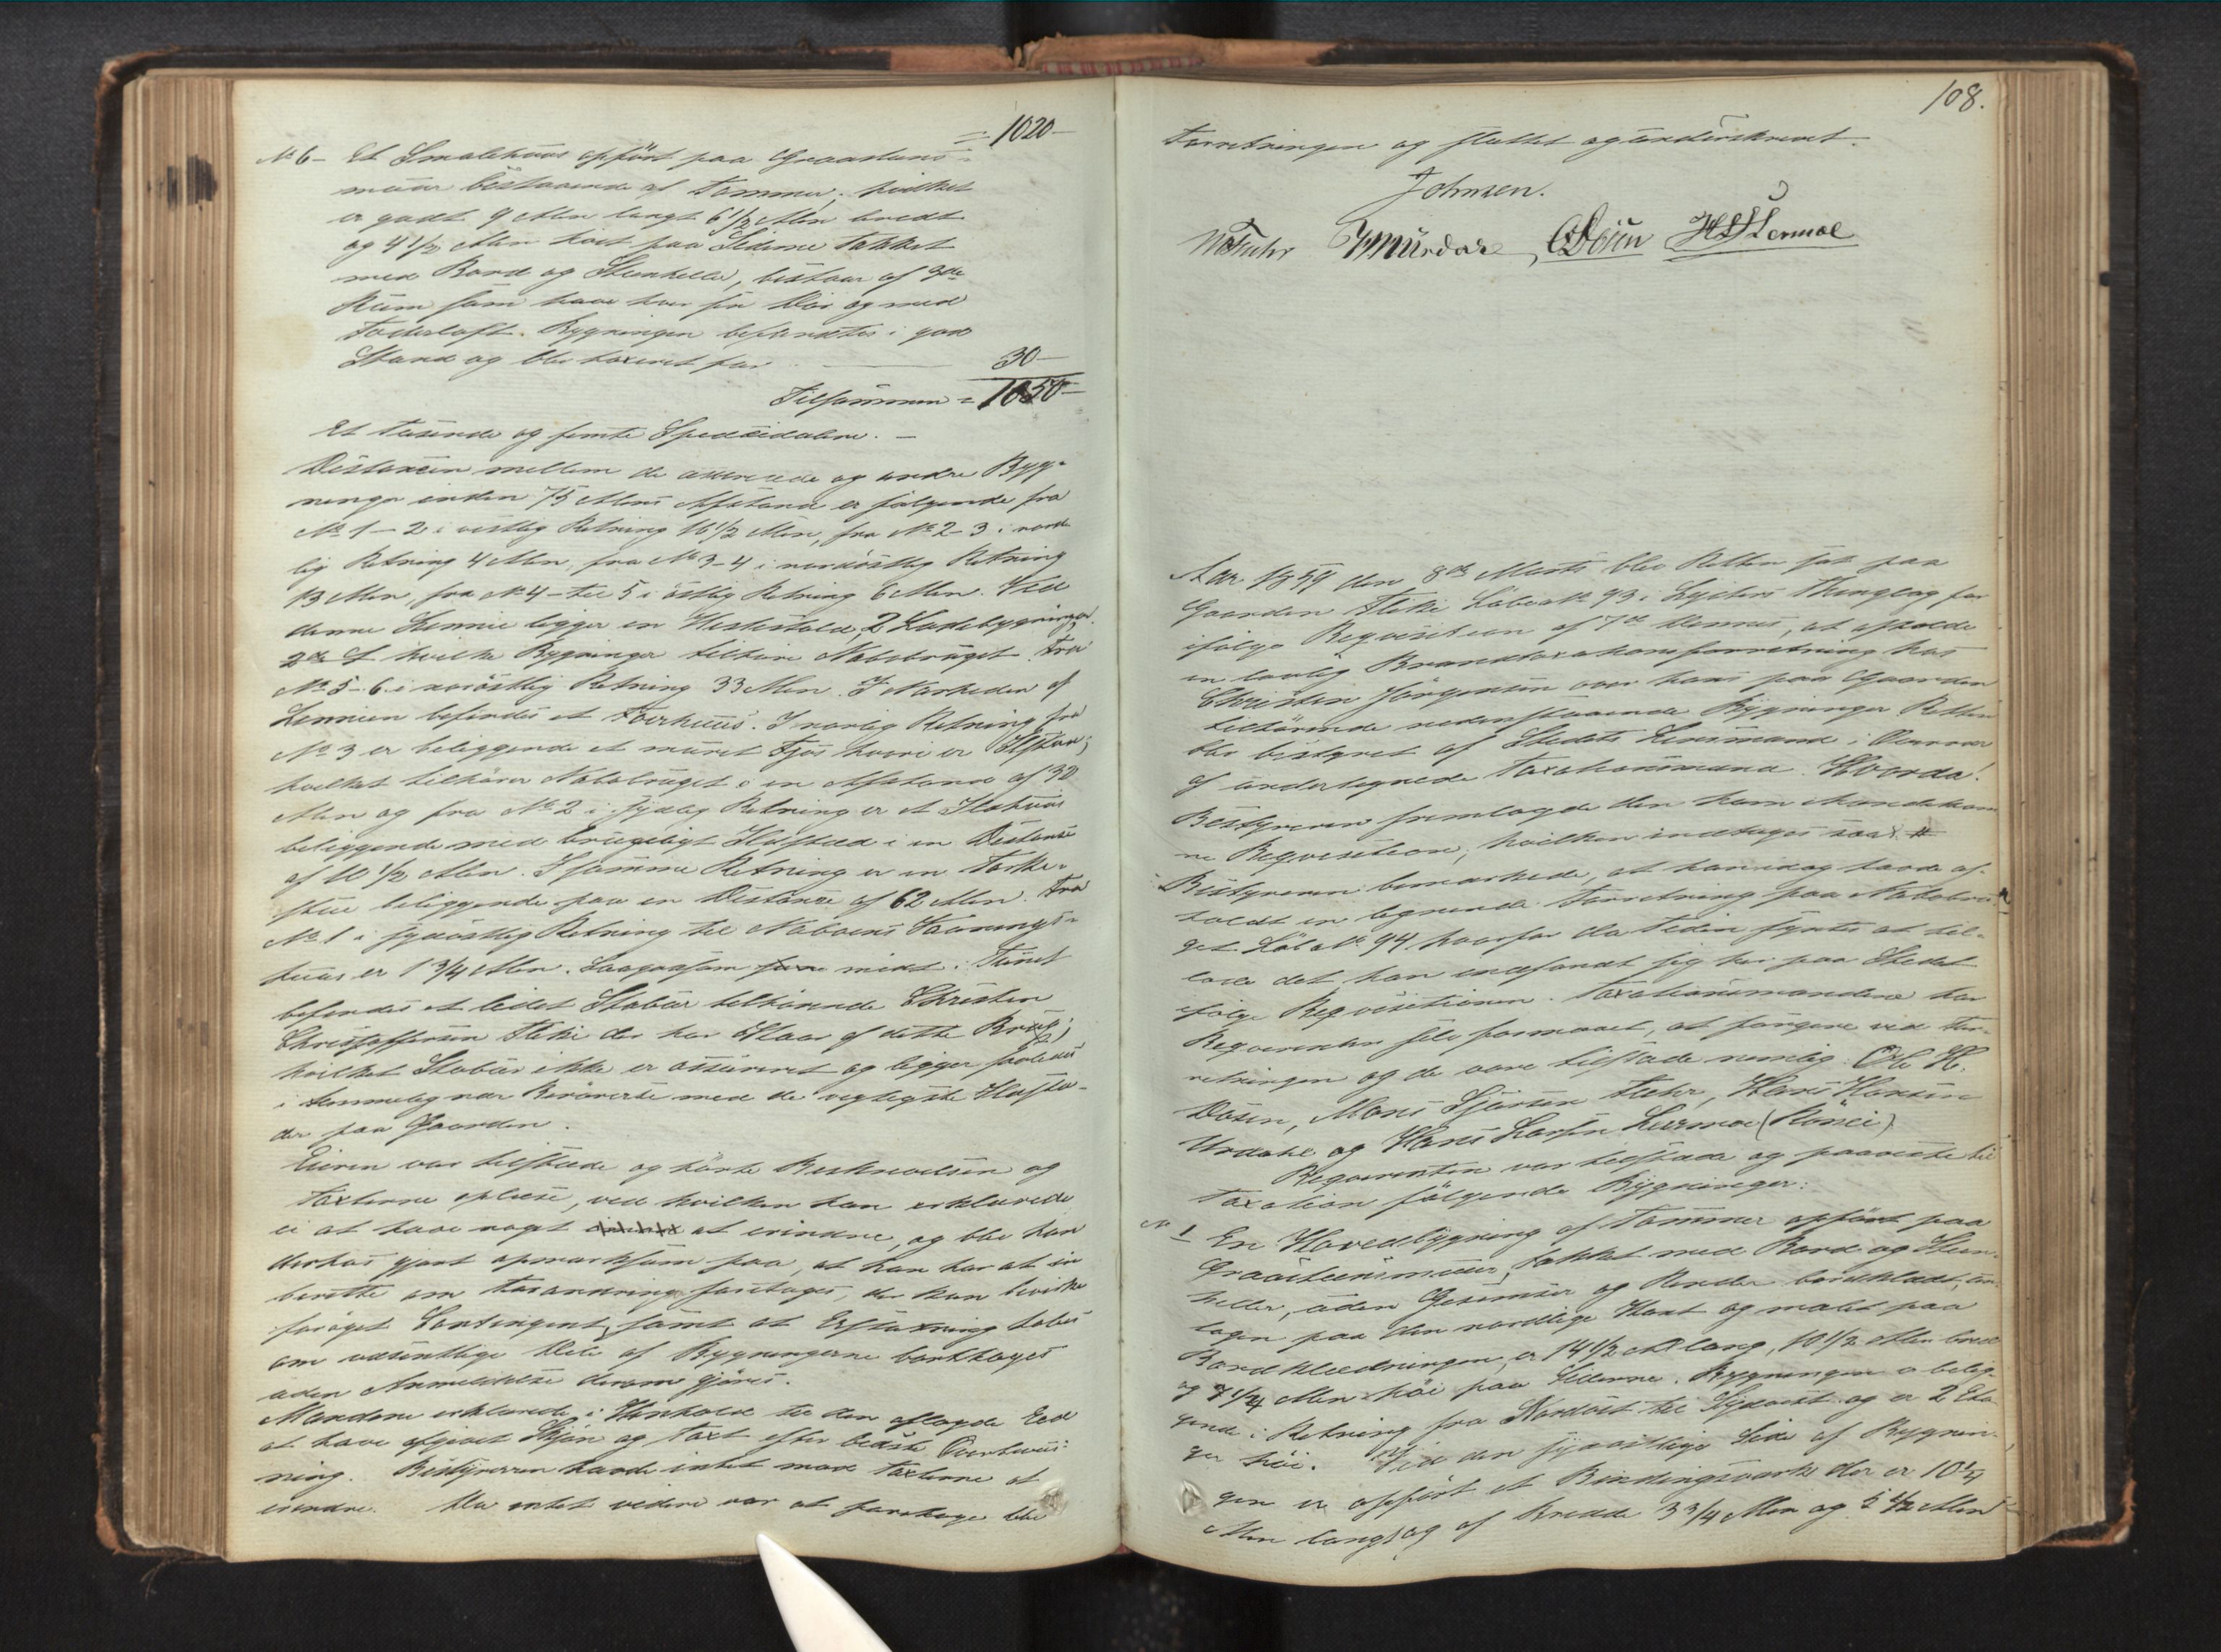 = 1020 –
No 6 – Et Smalehuus opført paa Graasteens-
muur bestaaende af Tømmer, hvilket
er godt 9 Alen langt 6 1/2 Alen bredt
og 4 1/2 Alen høit paa Siderne takket
med Bord og Steenheller, bestaar af 2de
Rum som have hver sin Dør og med
Foderloft. Bygningen befandtes i god
Stand og blev taxeret for 30 –
Tilsammen = 1050 –
Et tusinde og femti Speciedalere. –
Distancen mellem de assurerede og andre Byg-
ninger inden 75 Alens Afstand er følgende fra
No 1 – 2 i vestlig Retning 16 1/2 Alen, fra No 2 – 3 i nord-
lig Retning 4 Alen, fra No 3 – 4 i nordøstlig Retning
13 Alen, fra No 4 – til 5 i østlig Retning 6 Alen. Ved
denne Linnie ligger en Hestestald, 2 Ladebygninger.
2de af hvilke Bygninger tilhøre Nabobruget. Fra
No 5 – 6 i nordøstlig Retning 33 Alen. I Nærheden af
Linnien befindes et Foerhuus. I nordlig Retning fra
No 3 er beliggende et muret Fjøs hvori er Ildsted,
hvilket tilhører Nabobruget i en Afstand af 32
Alen og fra No 2 i sydlig Retning er et Ildhuus
beliggende med brugeligt Ildsted i en Distance
af 10 1/2 Alen. I samme Retning er en Tørke-
stue beliggende paa en Distance af 62 Alen. Fra
No 1 i sydøstlig Retning til Naboens Vaanings-
huus er 1 3/4 Alen. Saagodtsom midt i Tunet
befindes et lidet Stabur tilhørende Christen
Christoffersen Fleke der har Kaar af dette Brug,
hvilket Stabur ikke er assureret og ligger saaledes
i temmelig nær Berørelse med de vigtigste Ildste-
der paa Gaarden.
Eieren var tilstæde og hørte Beskrivelsen og
Taxterne oplæse, ved hvilken han erklærede
ei at have noget at erindre, og blev han
derhos gjort opmærksom paa, at han har at ind-
berette om Forandring foretages, der kan bevirke
forøget Contingent, samt at Erstatning tabes
om væsentlige Dele af Bygningerne borttages
uden Anmeldelse derom gjøres.
Mændene erklærede i Henhold til den aflagde Eed
at have afgivet Skjøn og Taxt efter bedste Overbeviis-
ning. Bestyreren havde intet mod Taxterne at
erindre. Da intet videre var at foretage blev
108.
Forretningen og sluttet og underskrevet.
Johnsen.
HHUrdal, ODøsen HLLermoe
Aar 1859 den 8de Marts blev Retten sat paa
Gaarden Fleke Løbe No 93 i Lysters Thinglag for
ifølge Requisition af 7de dennes, at afholde
en lovlig Brandtaxationsforretning hos
Christen Jørgensen over hans paa Gaarden
tilhørende nedenstaaende Bygninger. Retten
blev bestyret af Stedets Lensmand i Overvær
af undertegnede Taxationsmænd. Hvorda!
Bestyreren fremlagde den ham ihændekom-
ne Requisition, hvilken indtages saal. #
Bestyreren bemærkede, at han idag havde af-
holdt en lignende Forretning paa Nabobru-
get Løb No 94, hvorfor da Tiden syntes at til-
lade det, han indfandt sig her paa Stedet
ifølge Requisitionen. Taxationsmændene har
Requirenten selv formaaet, at fungere ved For-
retningen og de vare tilstæde nemlig: Ole H.
Døsen, Mons Sjursen Fleke, Hans Hansen
Urdahl og Hans Larsen Leermoe
Requirenten var tilstæde og paaviste til
Taxation følgende Bygninger:
No 1 En Hovedbygning af Tømmer opført paa
Graasteensmuur, takket med Bord og Steen-
heller, uden Gesimser og Render bordklædt, und-
tagen paa den nordlige Kant og malet paa
Bordklædningen, er 14 1/2 Al lang, 10 1/2 Alen bred
og 7 1/4 Alen høi paa Siderne. Bygningen er belig-
gende i Retning fra Nordost til Sydvest og er 2 Eta-
ger høi. Ved den sydøstlige Side af Bygnin-
gen er opført et Bindingsværk der er 10 1/4
Alen langt, og af Bredde 3 3/4 Alen og 5 1/2 Alen